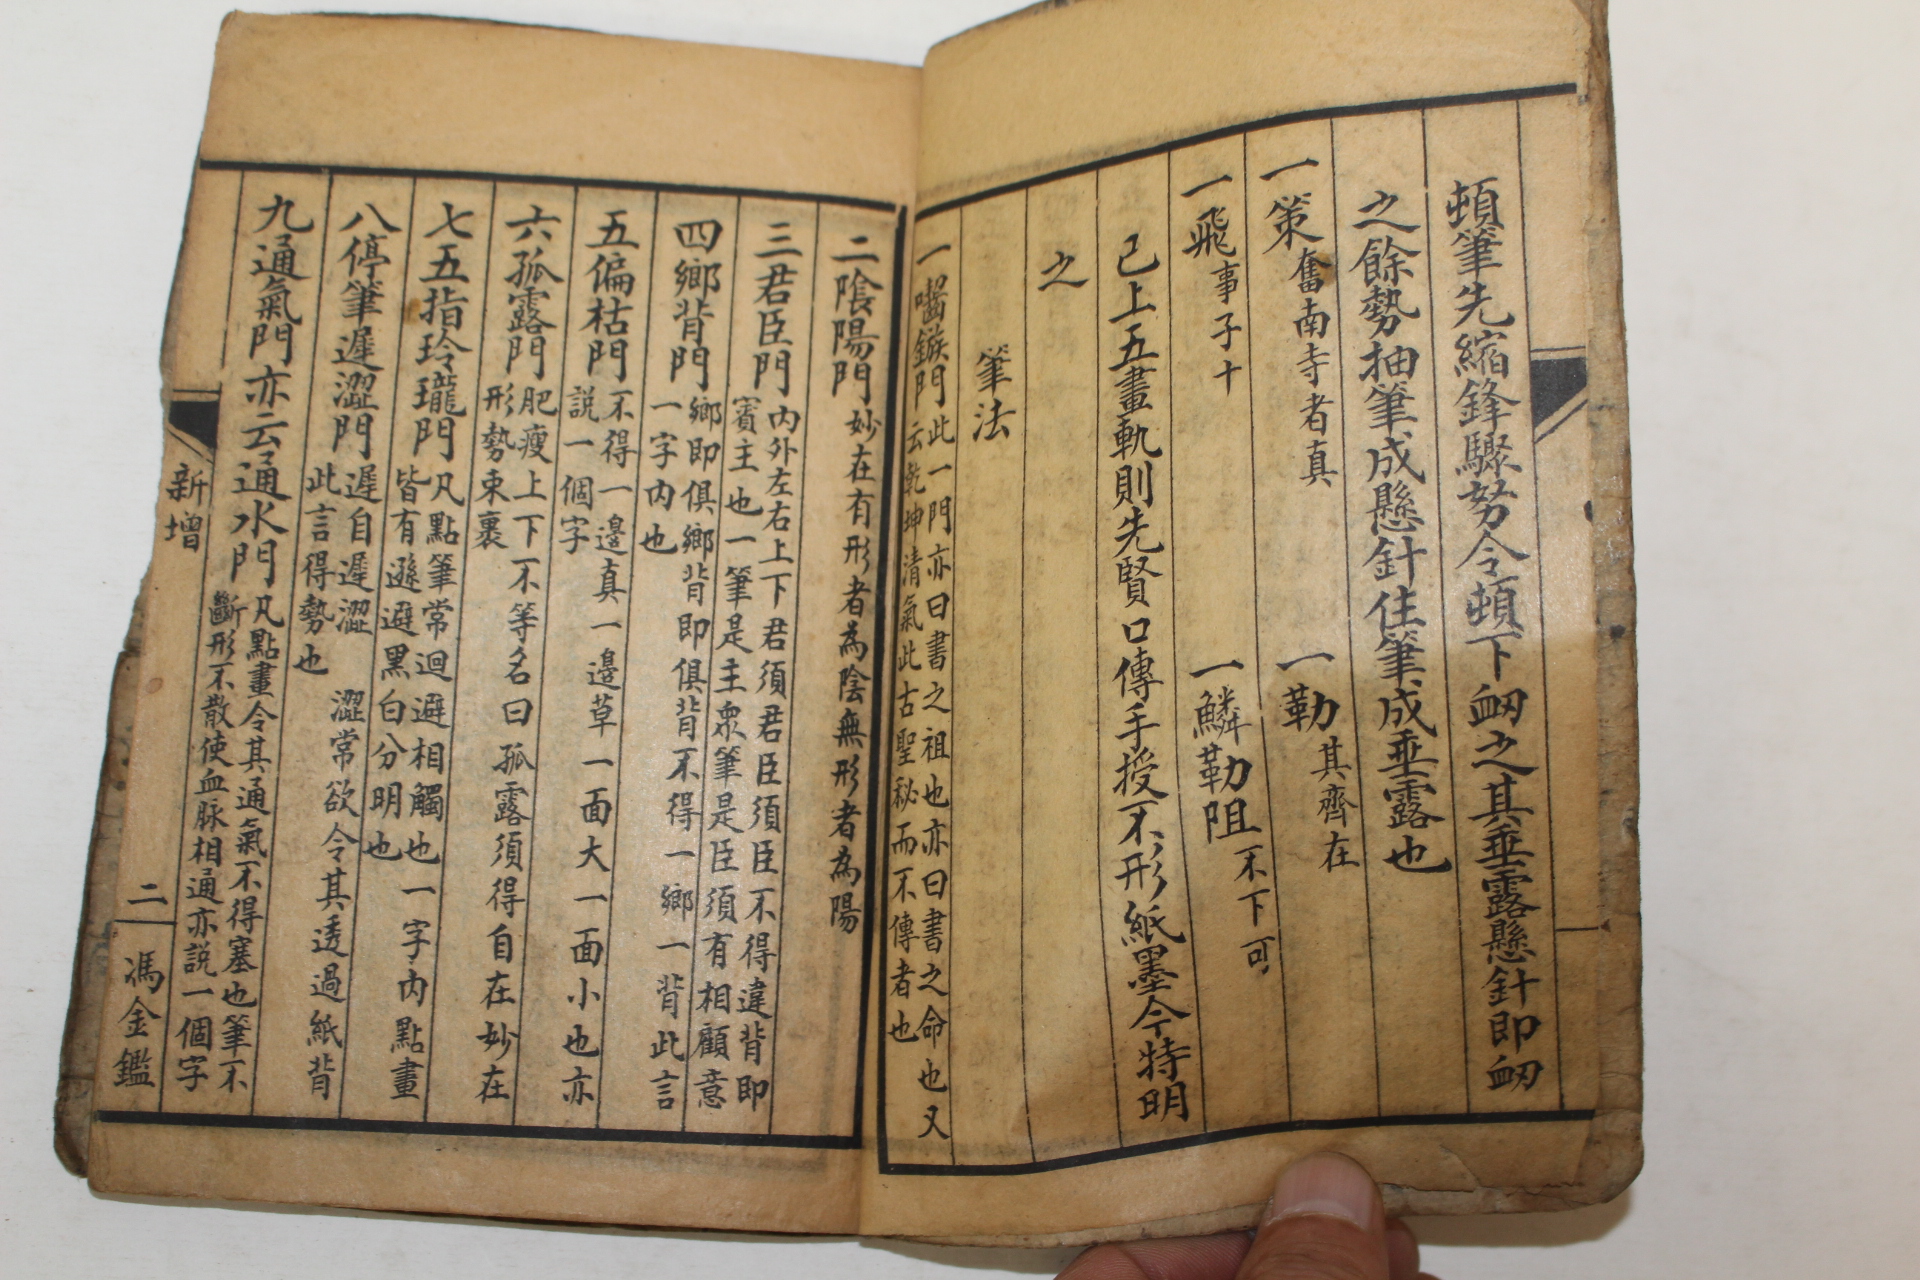 頓筆先縮鋒驟努令頓下衂之其垂露懸針即衂
之餘勢抽筆成懸針住筆成垂露也
一策奮南寺者真 一勒其齊在
一飛事子十 一鱗勒阻不下可
已上五畫軌則先賢口傳手授不形紙墨今特明
之
筆法
一嚙鏃門此一門亦曰書之祖也亦曰書之命也又
云乾坤清氣此古聖秘而不傳者也
二陰陽門妙在有形者為陰無形者為陽
三君臣門內外左右上下君須君臣須臣不得違背即
賓主也一筆是主衆筆是臣須有相顧意
四鄉背門鄉即俱鄉背即俱背不得一鄉一背此言
一字內也
五偏枯門不得一邊真一邊草一面大一面小也亦
説一個字
六孤露門肥瘦上下不等名曰孤露須得自在妙在
形勢束裏
七五指玲瓏門凡點筆常迴避相觸也一字內點畫
皆有遜避黑白分明也
八停筆遲澀門遲自遲澀 澀常欲令其透過紙背
此言得勢也
九通氣門亦云通水門凡點畫令其通氣不得塞也筆不
斷形不散使血脉相通亦説一個字
新增
二
馮金鑑